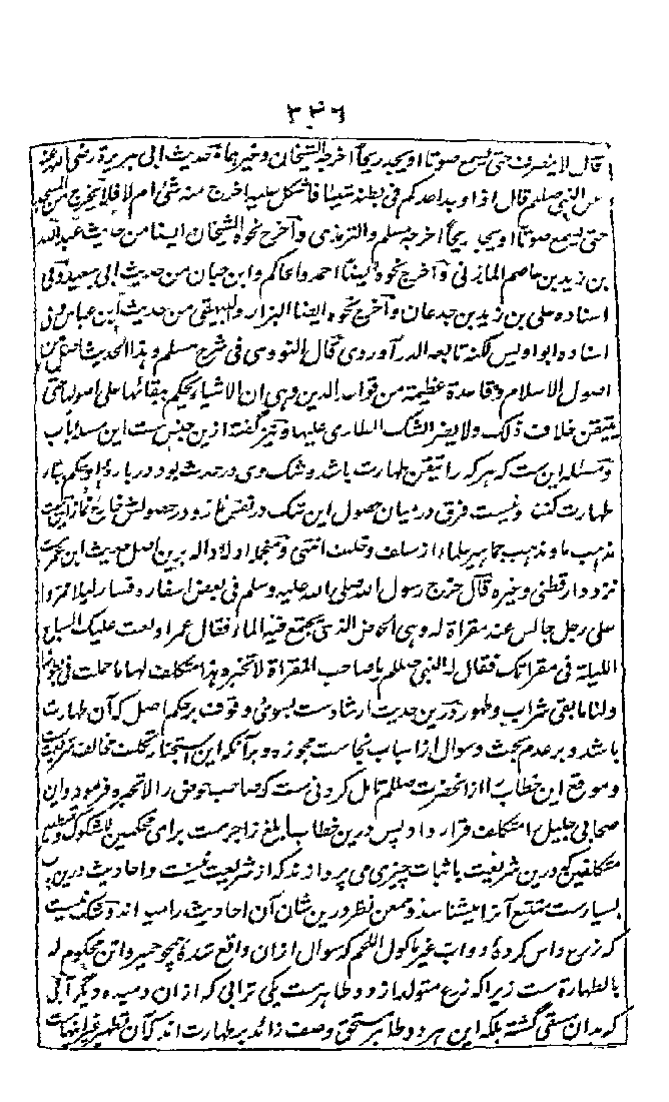 ۳۴۶
قال لا ینصرف حتی یسمع صوتا او یجد ریحا اخرجه الشیخان وغیرهما و حدیث ابی هریرة رضی الله عنه
عن النبی صلعم قال اذا وجد احدکم فی بطنه شیئا فاشکل علیه اخرج منه شئ ام لا فلا یخرج من المسجد
حتی یسمع صوتا او یجد ریحا اخرجه مسلم والترمذی وآخرج نحوه الشیخان ایضا من حدیث عبد الله
بن زید بن عاصم المازنی وآخرج نحوه ایضا احمد والحاکم وابن حبان من حدیث ابی سعید وفی
اسناده علی بن زید بن جدعان وآخرج نحوه ایضا البزار والبیهقی من حدیث ابن عباس وفی
اسناده ابو اویس لکنه تابعه الدرآوردی قال النووی فی شرح مسلم وهذا الحدیث اصل من
اصول الاسلام وقاعدة عظیمة من قواعد الدین وهی ان الاشیاء یحکم ببقائها علی اصولها حتی
یتیقن خلاف ذلک ولا یضر الشک الطاری علیها ونیز گفته ازین جنس ست این مسئله باب
ومسئله این ست که هر که را تیقن طهارت باشد و شک وی در حدث بود درباره او حکم ببقاء
طهارت کنند ونیست فرق درمیان حصول این شک در نفس نماز و در حصولش خارج نماز این ست
مذهب ما و مذهب جماهیر علماء از سلف وخلف انتهی ومنجمله ادله داله برین اصل حدیث ابن عمر ست
نزد دارقطنی وغیره قال خرج رسول الله صلی الله علیه وسلم فی بعض اسفاره فسار لیلا فمروا
علی رجل جالس عند مقراة له وهی الحوض الذی یجتمع فیه الماء فقال عمر اولغت علیک السباع
اللیلة فی مقراتک فقال له النبی صلعم یا صاحب المقراة لا تخبره هذا متکلف لها ما حملت فی بطونها
ولنا ما بقی شراب وطهور ودرین حدیث ارشاد ست بسوئ وقوف بر حکم اصل که آن طهارت
باشد و بر عدم بحث وسوال از اسباب نجاست مجوزه و برآنکه این استخبار تکلف مخالف شریعت ست
وموقع این خطاب را از آنحضرت صلعم تامل کردنی ست که صاحب حوض را لا تخبره فرموده واین
صحابی جلیل را متکلف قرار داد پس درین خطاب ابلغ زاجر ست برای محکمین للشکوک وتنطع
متکلفین که درین شریعت باثبات چیزی می پردازند که از شریعت نیست واحادیث درین باب
بسیارست متتبع آنرا میشناسد و ممعن نظر درین شان آن احادیث را می یابد و شک نیست
که زرع داس کردهٔ دواب غیر ماکول اللحم که سوال ازان واقع شده همچو حمیر واتن محکوم له
بالطهارة ست زیرا که زرع متولد از دو طاهر ست یکی ترابی که ازان دمیده ودیگر آبی
که بدان سقی گشته بلکه این هر دو طاهر مستحق وصف زائد بر طهارت اند که آن تطهیر غیر نجاست